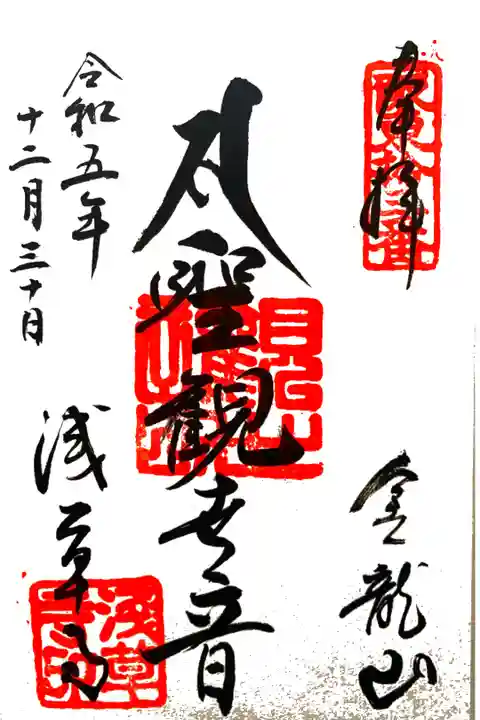 奉拝
金龍山
聖観世音
令和五年
十二月三十日
浅草寺